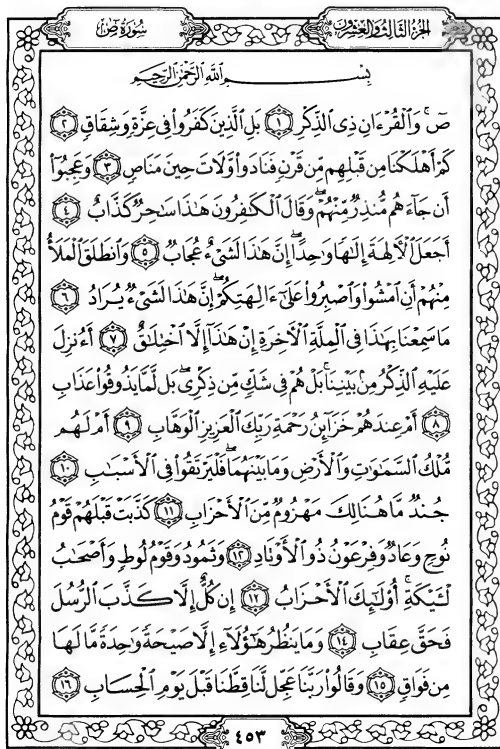 الجزء الثالث والعشرون
سورة ص
بِسْمِ اللَّهِ الرَّحْمَٰنِ الرَّحِيمِ
صٓۚ وَٱلْقُرْءَانِ ذِى ٱلذِّكْرِ ۝١ بَلِ ٱلَّذِينَ كَفَرُوا۟ فِى عِزَّةٍ وَشِقَاقٍ ۝٢
كَمْ أَهْلَكْنَا مِن قَبْلِهِم مِّن قَرْنٍ فَنَادَوا۟ وَّلَاتَ حِينَ مَنَاصٍ ۝٣ وَعَجِبُوٓا۟
أَن جَآءَهُم مُّنذِرٌ مِّنْهُمْۖ وَقَالَ ٱلْكَٰفِرُونَ هَٰذَا سَٰحِرٌ كَذَّابٌ ۝٤
أَجَعَلَ ٱلْءَالِهَةَ إِلَٰهًا وَٰحِدًاۖ إِنَّ هَٰذَا لَشَىْءٌ عُجَابٌ ۝٥ وَٱنطَلَقَ ٱلْمَلَأُ
مِنْهُمْ أَنِ ٱمْشُوا۟ وَٱصْبِرُوا۟ عَلَىٰٓ ءَالِهَتِكُمْۖ إِنَّ هَٰذَا لَشَىْءٌ يُرَادُ ۝٦
مَا سَمِعْنَا بِهَٰذَا فِى ٱلْمِلَّةِ ٱلْءَاخِرَةِ إِنْ هَٰذَآ إِلَّا ٱخْتِلَٰقٌ ۝٧ أَءُنزِلَ
عَلَيْهِ ٱلذِّكْرُ مِنۢ بَيْنِنَاۚ بَلْ هُمْ فِى شَكٍّ مِّن ذِكْرِىۖ بَل لَّمَّا يَذُوقُوا۟ عَذَابِ
۝٨ أَمْ عِندَهُمْ خَزَآئِنُ رَحْمَةِ رَبِّكَ ٱلْعَزِيزِ ٱلْوَهَّابِ ۝٩ أَمْ لَهُم
مُّلْكُ ٱلسَّمَٰوَٰتِ وَٱلْأَرْضِ وَمَا بَيْنَهُمَاۖ فَلْيَرْتَقُوا۟ فِى ٱلْأَسْبَٰبِ ۝١٠
جُندٌ مَّا هُنَالِكَ مَهْزُومٌ مِّنَ ٱلْأَحْزَابِ ۝١١ كَذَّبَتْ قَبْلَهُمْ قَوْمُ
نُوحٍ وَعَادٌ وَفِرْعَوْنُ ذُو ٱلْأَوْتَادِ ۝١٢ وَثَمُودُ وَقَوْمُ لُوطٍ وَأَصْحَٰبُ
لْـَٔيْكَةِۚ أُو۟لَٰٓئِكَ ٱلْأَحْزَابُ ۝١٣ إِن كُلٌّ إِلَّا كَذَّبَ ٱلرُّسُلَ
فَحَقَّ عِقَابِ ۝١٤ وَمَا يَنظُرُ هَٰٓؤُلَآءِ إِلَّا صَيْحَةً وَٰحِدَةً مَّا لَهَا
مِن فَوَاقٍ ۝١٥ وَقَالُوا۟ رَبَّنَا عَجِّل لَّنَا قِطَّنَا قَبْلَ يَوْمِ ٱلْحِسَابِ ۝١٦
٤٥٣